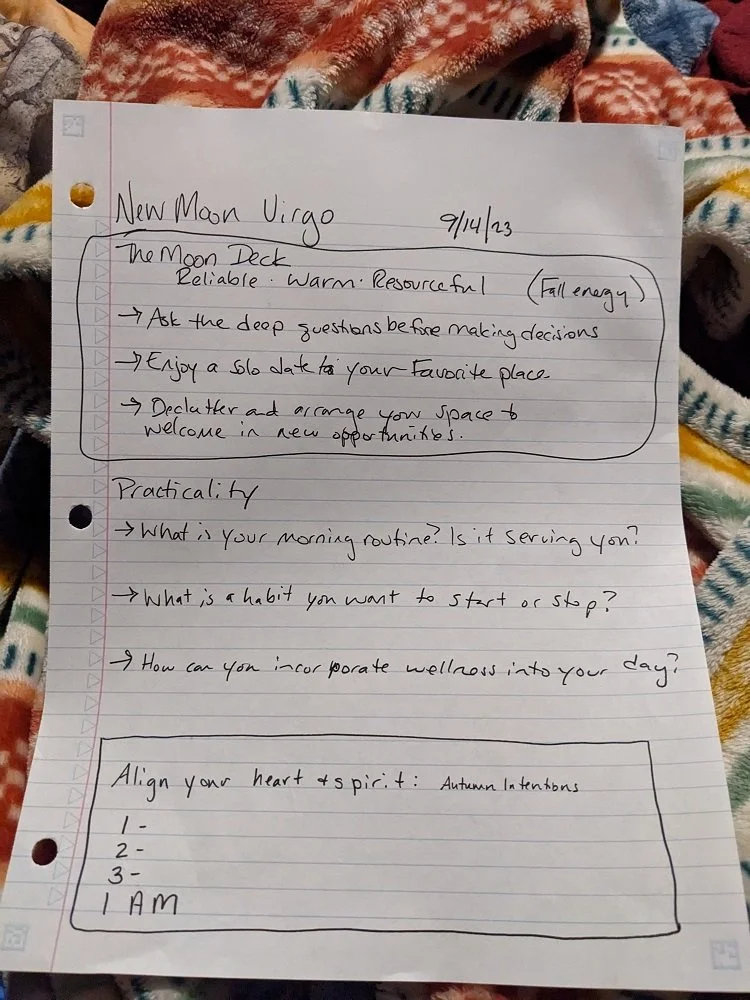 New Moon Virgo 9/14/23
The Moon Deck
Reliable · Warm · Resourceful (Fall energy)
→ Ask the deep questions before making decisions
→ Enjoy a solo date to your Favorite place
→ Declutter and arrange your space to
welcome in new opportunities.
Practicality
→ What is your morning routine? Is it serving you?
→ What is a habit you want to start or stop?
→ How can you incorporate wellness into your day?
Align your heart + spirit: Autumn Intentions
1 -
2 -
3 -
I AM